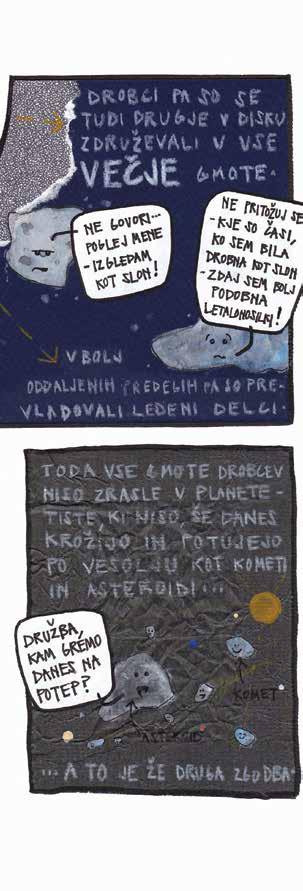 DROBCI PA SO SE
TUDI DRUGJE V DISKU
ZDRUŽEVALI V VSE
VEČJE GMOTE.
NE GOVORI...
POGLEJ MENE
- IZGLEDAM
KOT SLON!
NE PRITOŽUJ SE
- KJE SO ČASI,
KO SEM BILA
DROBNA KOT SLON
- ZDAJ SEM BOLJ
PODOBNA
LETALONOSILKI!
V BOLJ
ODDALJENIH PREDELIH PA SO PRE-
VLADOVALI LEDENI DELCI.
TODA VSE GMOTE DROBCEV
NISO ZRASLE V PLANETE -
TISTE, KI NISO, ŠE DANES
KROŽIJO IN POTUJEJO
PO VESOLJU KOT KOMETI
IN ASTEROIDI...
DRUŽBA,
KAM GREMO
DANES NA
POTEP?
KOMET
ASTEROID
... A TO JE ŽE DRUGA ZGODBA